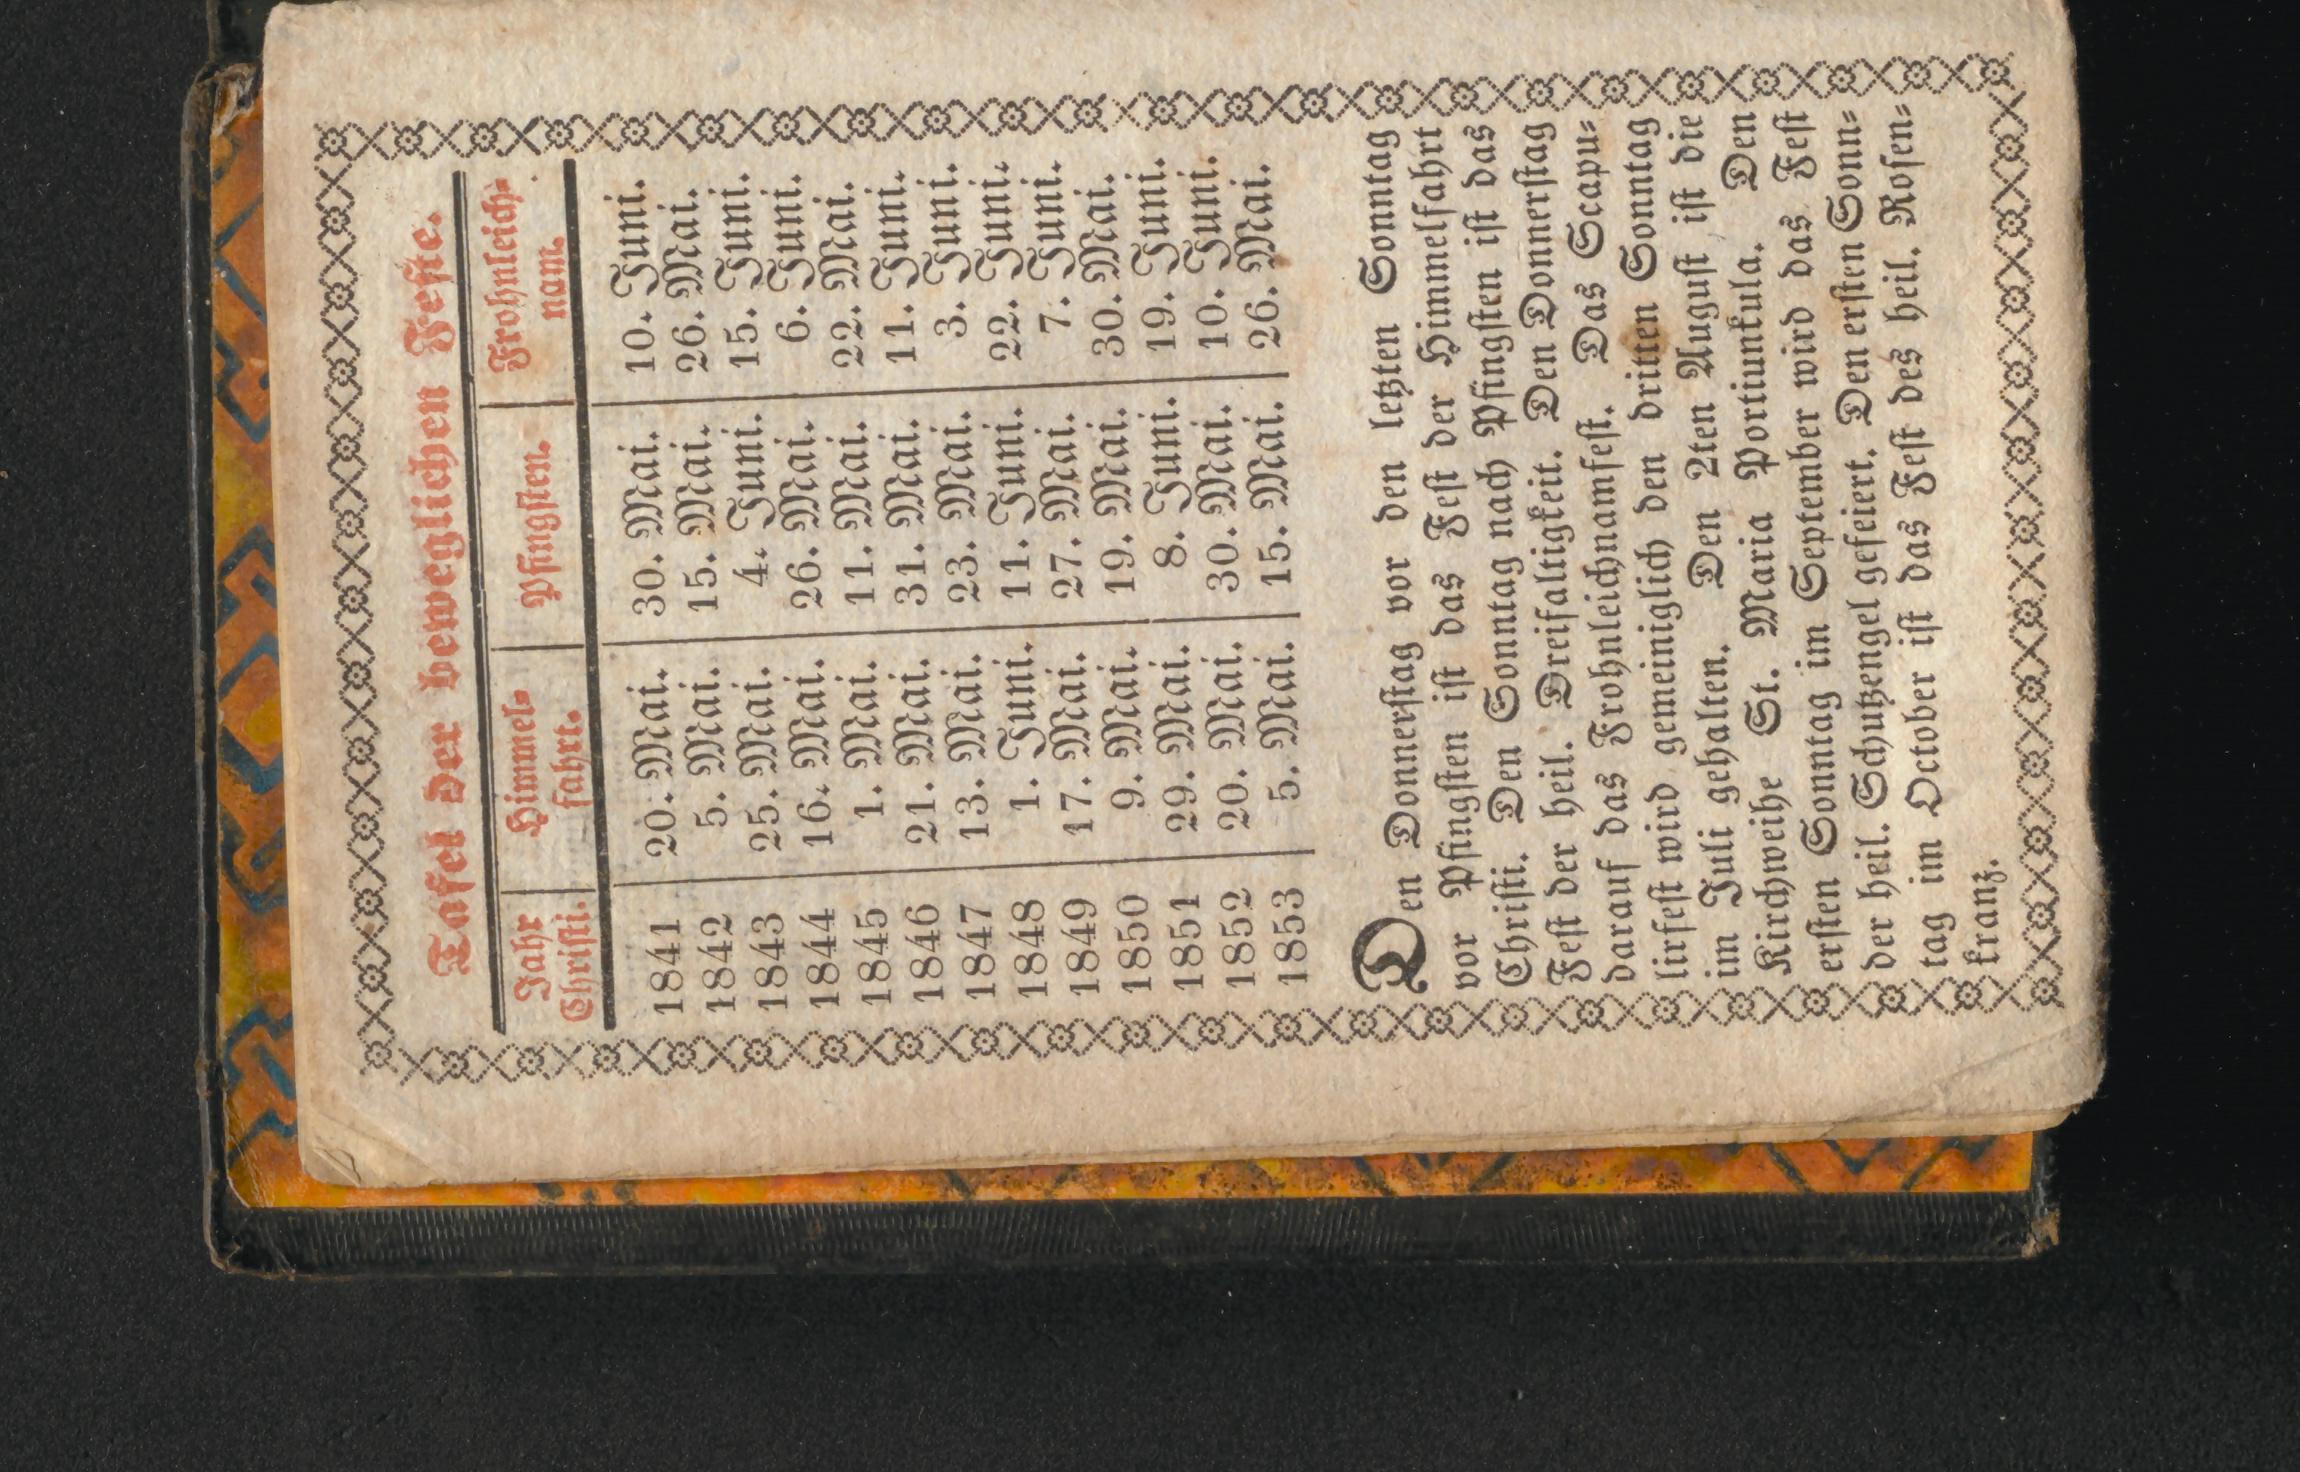 Tafel der beweglichen Feste.
Jahr Christi. Himmel- fahrt. Pfingsten. Frohnleich- nam.
1841 20. Mai. 30. Mai. 10. Juni.
1842 5. Mai. 15. Mai. 26. Mai.
1843 25. Mai. 4. Juni. 15. Juni.
1844 16. Mai. 26. Mai. 6. Juni.
1845 1. Mai. 11. Mai. 22. Mai.
1846 21. Mai. 31. Mai. 11. Juni.
1847 13. Mai. 23. Mai. 3. Juni.
1848 1. Juni. 11. Juni. 22. Juni.
1849 17. Mai. 27. Mai. 7. Juni.
1850 9. Mai. 19. Mai. 30. Mai.
1851 29. Mai. 8. Juni. 19. Juni.
1852 20. Mai. 30. Mai. 10. Juni.
1853 5. Mai. 15. Mai. 26. Mai.
Den Donnerstag vor den letzten Sonntag
vor Pfingsten ist das Fest der Himmelfahrt
Christi. Den Sonntag nach Pfingsten ist das
Fest der heil. Dreifaltigkeit. Den Donnerstag
darauf das Frohnleichnamfest. Das Scapu-
lirfest wird gemeiniglich den dritten Sonntag
im Juli gehalten. Den 2ten August ist die
Kirchweihe St. Maria Portiunkula. Den
ersten Sonntag im September wird das Fest
der heil. Schutzengel gefeiert. Den ersten Sonn-
tag im October ist das Fest des heil. Rosen-
kranz.